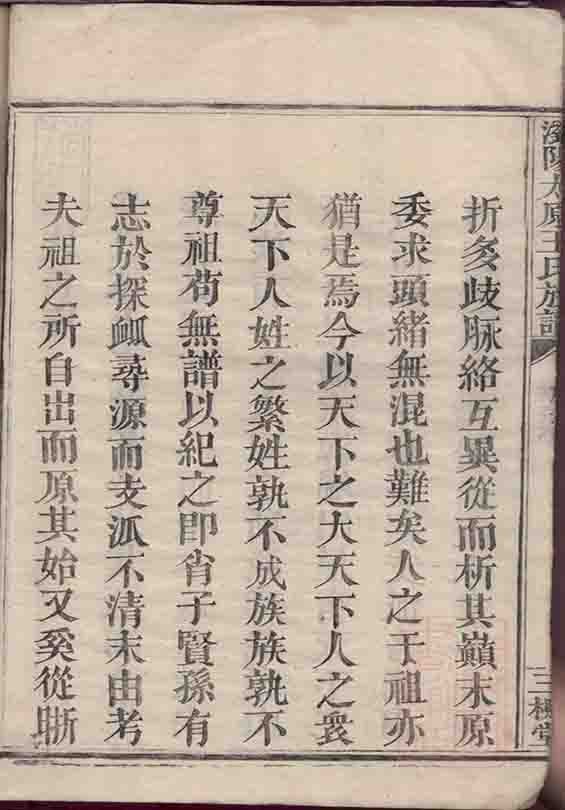 瀏陽太原王氏族譜
三槐堂
折多歧脉絡互異從而析其巔末原
委求頭緒無混也難矣人之于祖亦
猶是焉今以天下之大天下人之衆
天下人姓之繁姓孰不成族族孰不
尊祖苟無譜以紀之即肖子賢孫有
志於探㳽尋源而支派不清末由考
夫祖之所自出而原其始又奚從晰